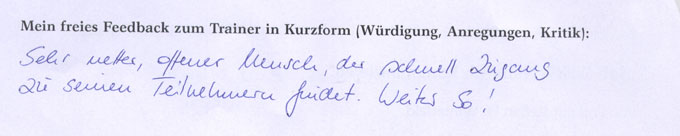 Mein freies Feedback zum Trainer in Kurzform (Würdigung, Anregungen, Kritik):
Sehr netter, offener Mensch, der schnell Zugang
zu seinen Teilnehmern findet. Weiter so!